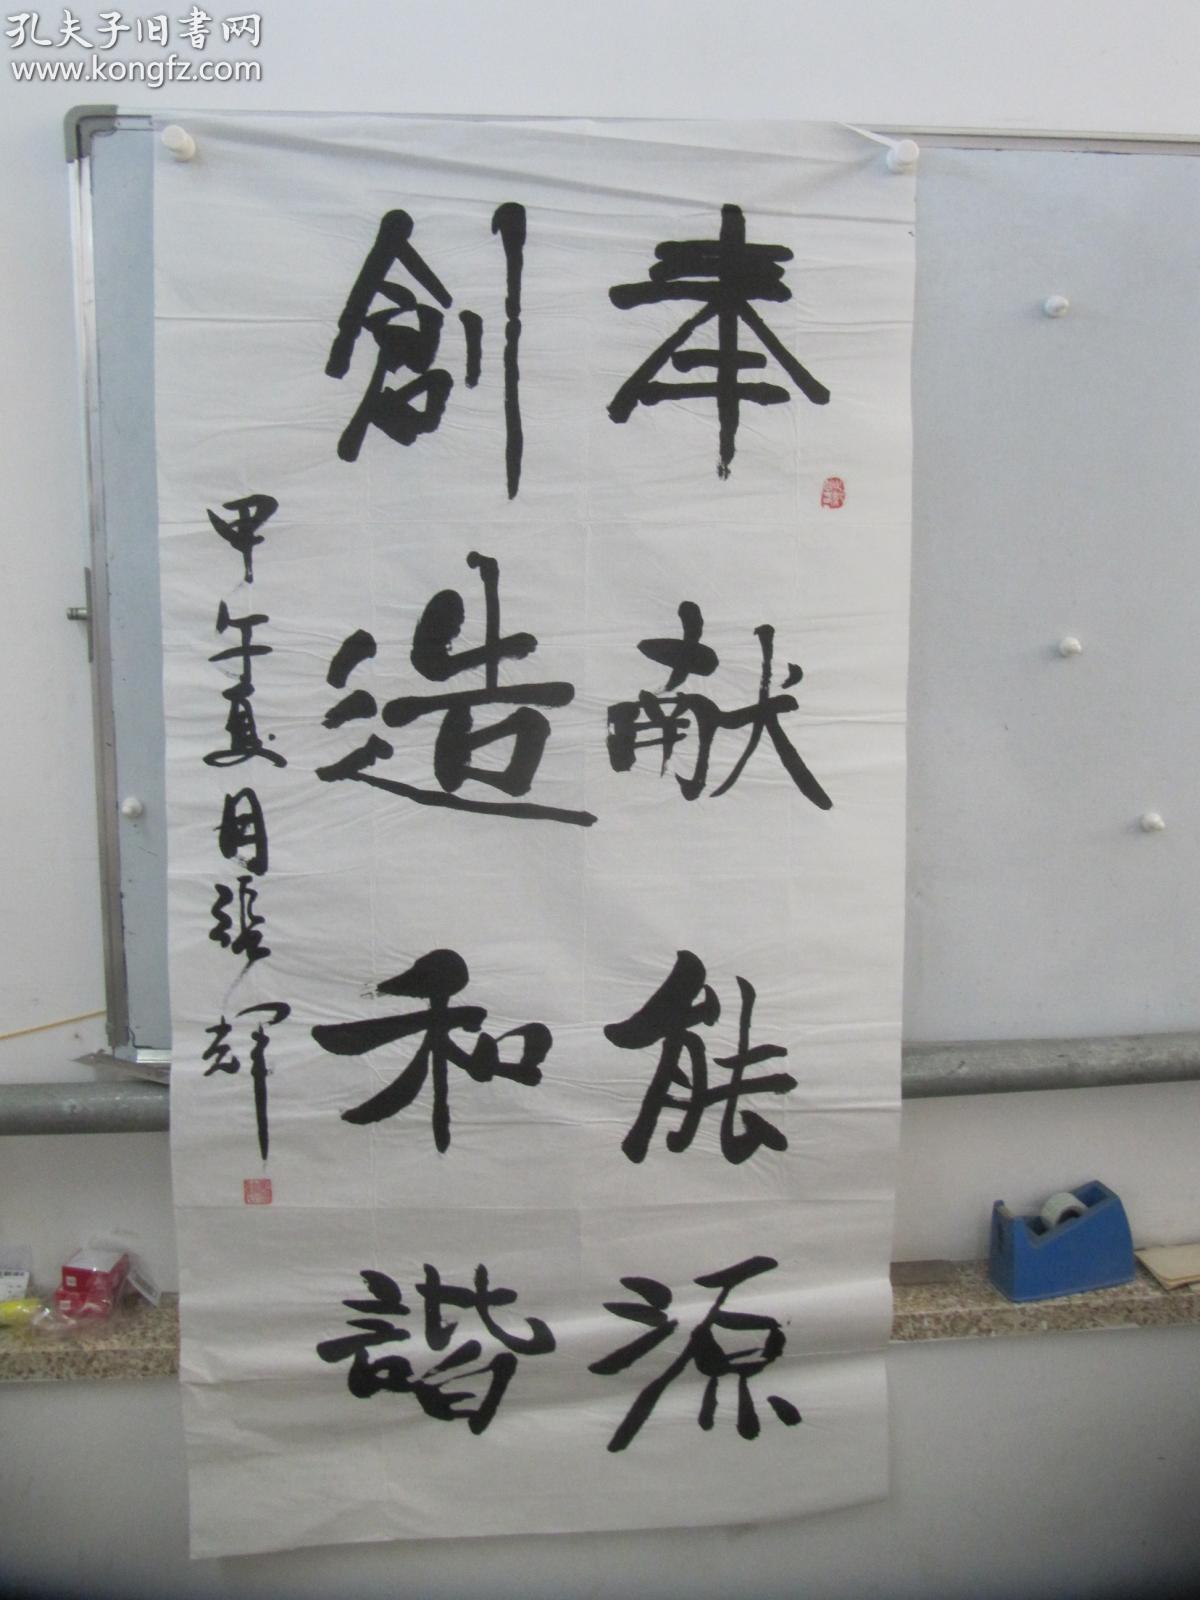 孔夫子旧書网
www.kongfz.com
奉献能源
創造和諧
甲午夏月張輝